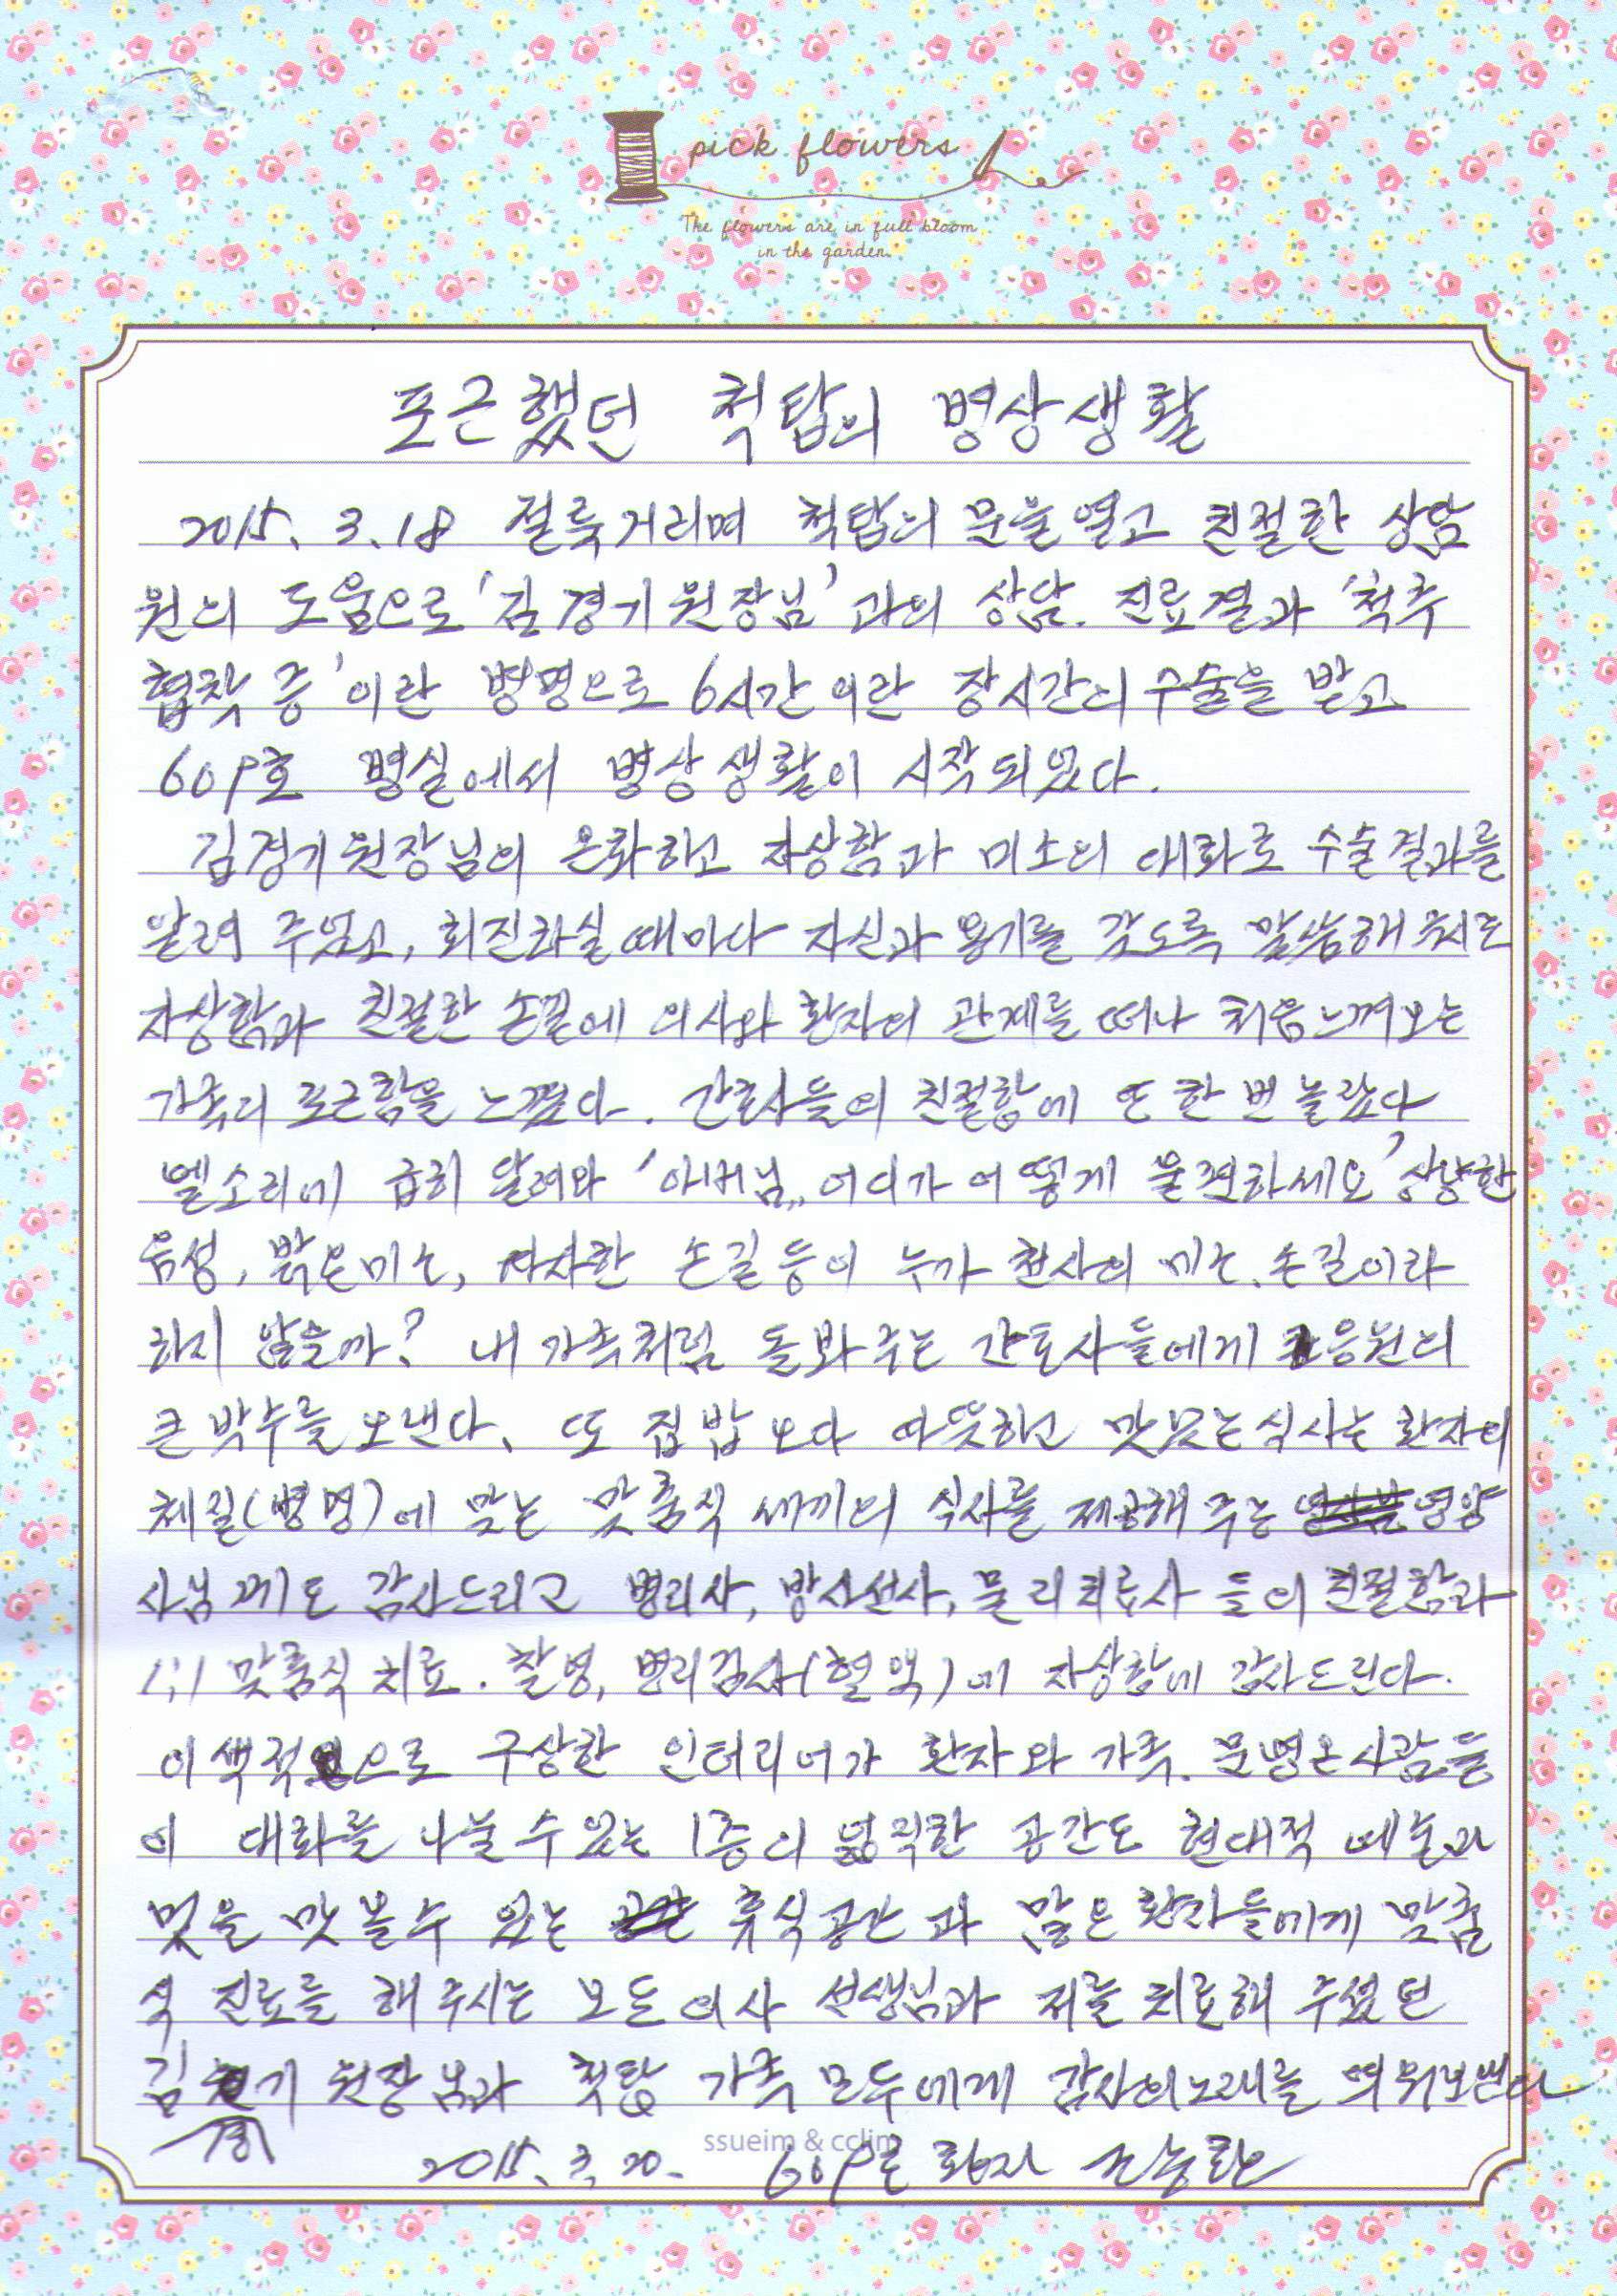 pick flowers
The flowers are in full bloom
in the garden.
포근했던 척탑의 병상생활
2015. 3.18 절룩거리며 척탑의 문을 열고 친절한 상담
원의 도움으로 '김경기원장님' 과의 상담. 진료결과 '척추
협착증'이란 병명으로 6시간이란 장시간의 수술을 받고
609호 병실에서 병상생활이 시작되었다.
김경기원장님의 온화하고 자상함과 미소의 대화로 수술결과를
알려 주었고, 회진하실때마다 자신과 용기를 갖도록 말씀해 주시는
자상함과 친절한 손길에 의사와 환자의 관계를 떠나 처음느껴보는
가족의 포근함을 느꼈다. 간호사들의 친절함에 또 한 번 놀랐다
벨소리에 급히 달려와 '아버님,, 어디가 어떻게 불편하세요' 상냥한
음성, 밝은미소, 자상한 손길등이 누가 천사의 미소. 손길이라
하지 않을까? 내 가족처럼 돌봐주는 간호사들에게 응원의
큰 박수를 보낸다. 또 집밥보다 따뜻하고 맛있는 식사는 환자의
체질(병명)에 맞는 맞춤식 세끼의 식사를 제공해 주는 영양
사님께도 감사드리고 병리사, 방사선사, 물리치료사 들의 친절함과
1:1 맞춤식 치료. 촬영, 병리검사(혈액)에 자상함에 감사드린다.
이색적으로 구상한 인터리어가 환자와 가족. 문병온사람들
이 대화를 나눌수있는 1층의 넓직한 공간도 현대적 예술과
멋을 맛볼수 있는 휴식공간과 많은 환자들에게 맞춤
식 진료를 해주시는 모든의사 선생님과 저를 치료해 주셨던
김경기 원장님과 척탑 가족 모두에게 감사의노래를 띄워보낸다
ssueim & cclim
2015. 3. 20. 609호 환자